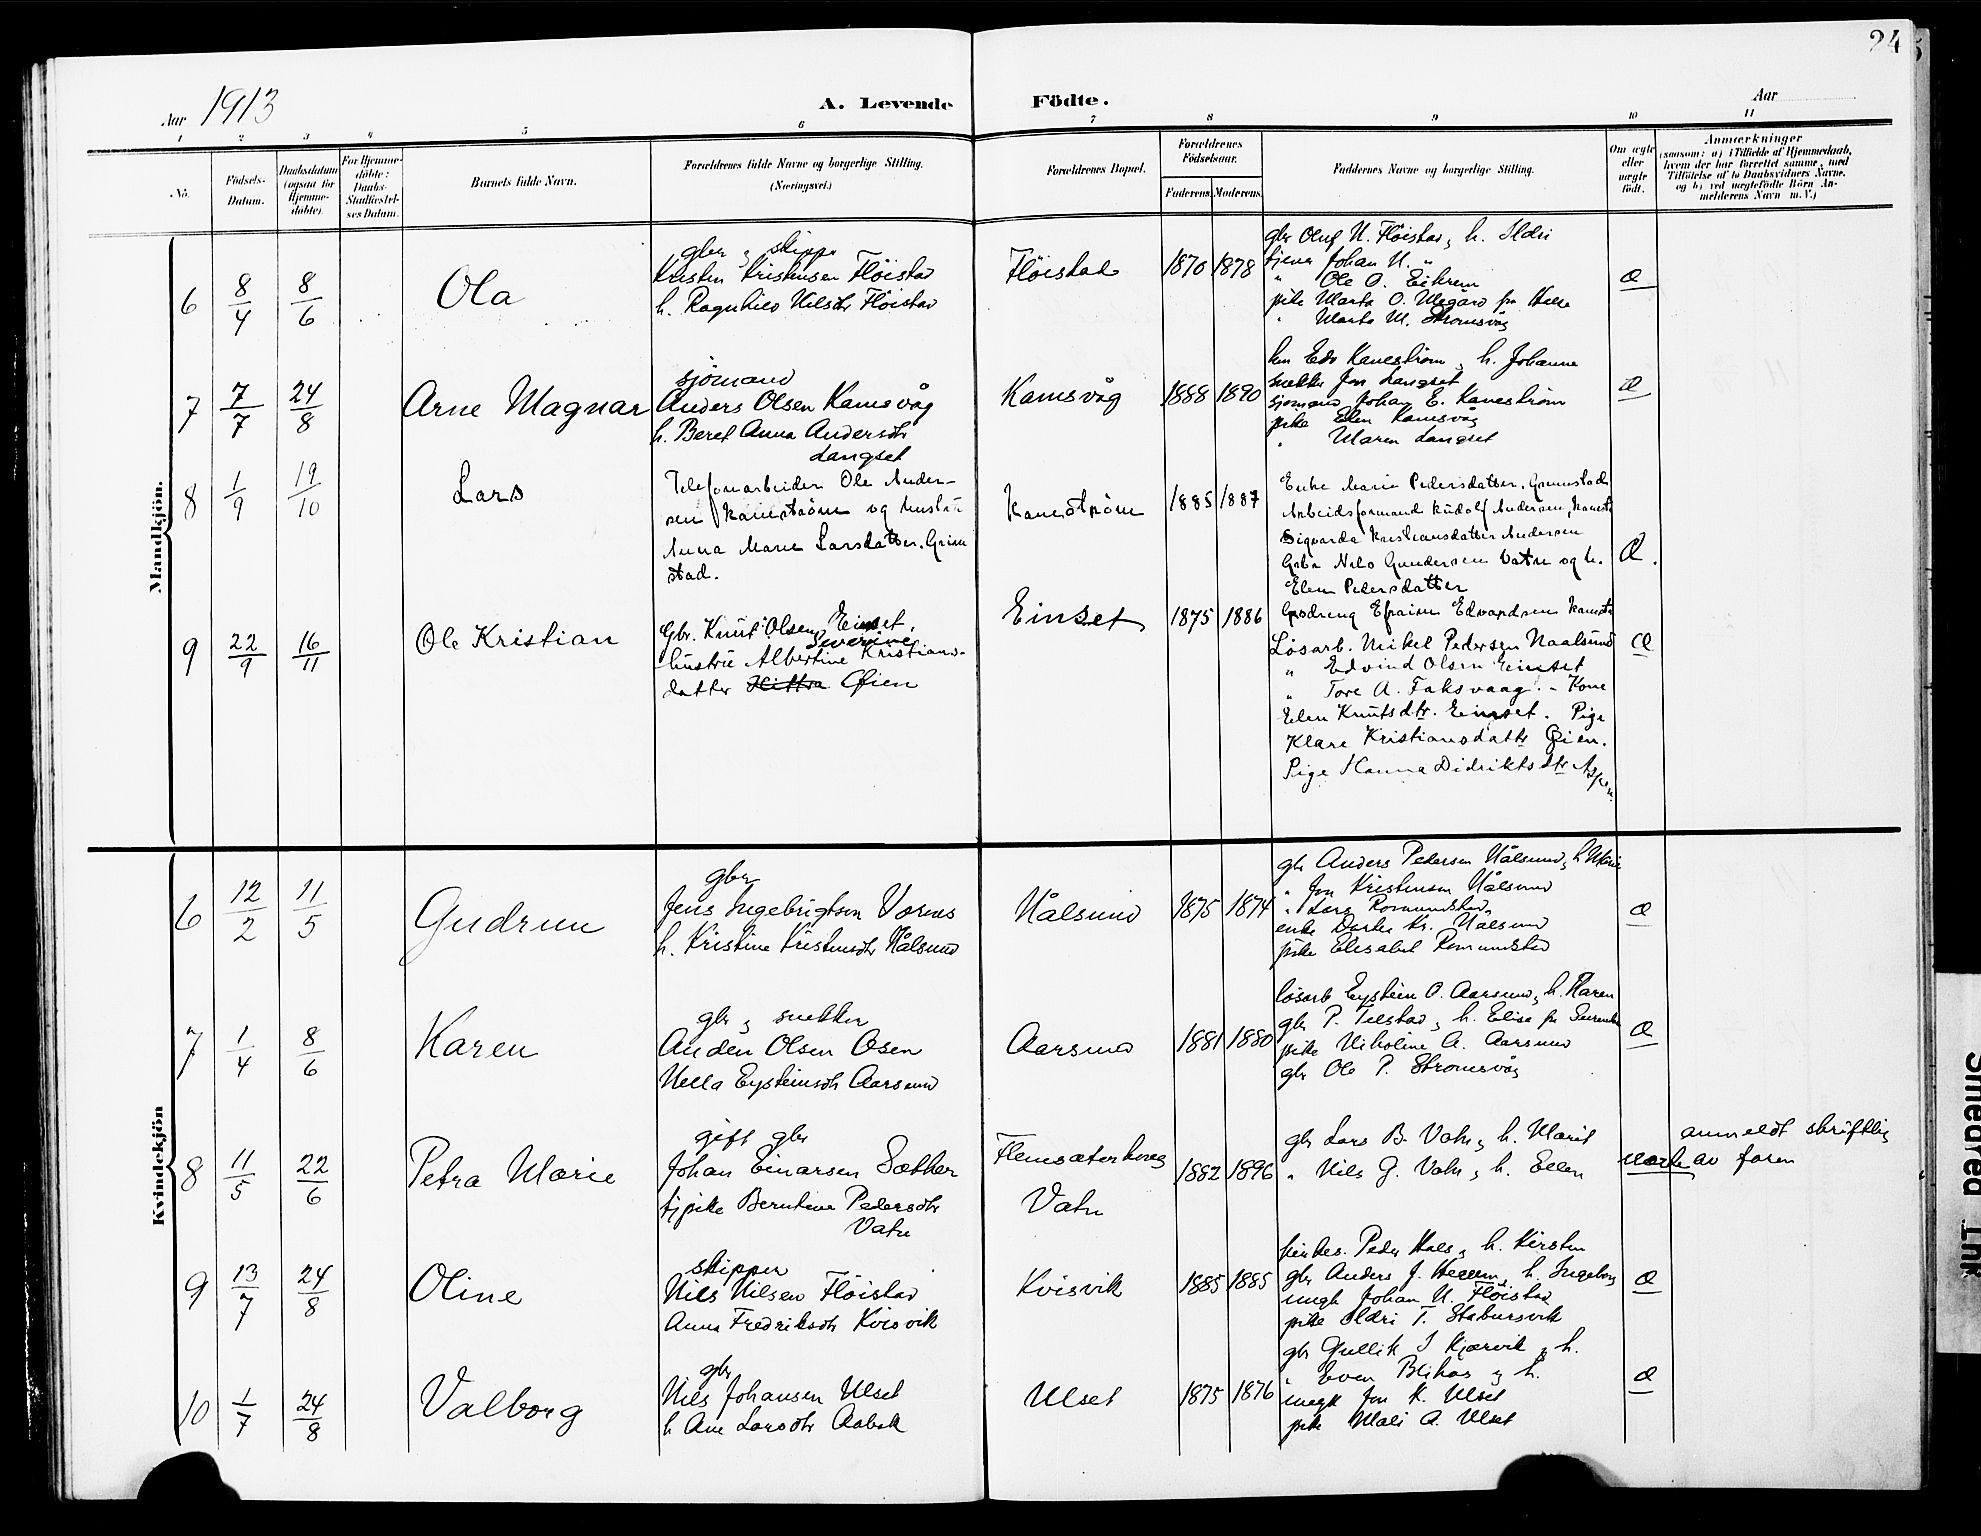 24
Aar 1913
A. Levende Födte.
Aar
1 2 3 4 5 6 7 8 9 10 11
No.
Födsels-Datum.
Daabsdatum (ogsaa for Hjemmedöbte).
For Hjemmedöbte: Daabs-Stadfæstelses Datum.
Barnets fulde Navn.
Forældrenes fulde Navne og borgerlige Stilling. (Næringsvei.)
Forældrenes Bopæl.
Forældrenes Födselsaar.
Faderens. Moderens.
Faddernes Navne og borgerlige Stilling.
Om ægte eller uægte født.
Anmærkninger
(saasom: a) i Tilfælde af Hjemmedaab, hvem der har forrettet samme, med Tilföielse af to Daabsvidners Navne, og b) ved uægtefödte Börn Anmelderens Navn m.V.)
Mandkjön.
6 8/4 8/6 Ola
gbr & skipper
Kristen Kristensen Flöistad
h. Ragnhild Nilsdtr Flöistad
Flöistad 1870 1878
gbr Oluf N. Flöistad & h. Ildri
tjener Johan N. "
" Ole O. Eikrem
pike Marta O. Megård fra Halsa
" Marta M. Strømsvåg
Æ
7 7/7 24/8 Arne Magnar
sjömand
Anders Olsen Kamsvåg
h. Beret Anna Andersdtr
Langset
Kamsvåg 1888 1890
Edv Kaneström & h. Johanne
snekker Jon Langset
sjömand Johan E. Kaneström
pike Elen Kamsvåg
" Maren Langset
Æ
8 1/9 19/10 Lars
Telefonarbeider Ole Ander-
sen Kanestrøm og hustru
Anna Marie Larsdatter Grim
stad.
Kanestrøm 1885 1887
Enke Marie Pedersdatter, Grimstad
Arbeidsformand Rudolf Andersen, Kanestr
Sigvarda Kristiansdatter Andersen
Gbr Nils Gundersen Vatn og h.
Elen Pedersdatter
Æ.
9 22/9 16/11 Ole Kristian
Gbr. Knut Olsen Einset,
Severine
hustru Albertine Kristians-
datter Hittra Øien
Einset 1875 1886
Edvardsen Kanestr
Løsarb. Mikel Pedersen Naalsund
" Edvind Olsen Einset
" Tore A. Faksvaag. - Kone
Elen Knutsdtr. Einset. Pige
Klara Kristiansdattr Øien.
Pige Hanna Didriktsdtr Aspen.
Æ
Kvindekjön
6 12/2 11/5 Gudrun
gbr
Jens Ingebrigtsen Vornes
h. Kristine Kristensdtr Nålsund
Nålsund 1875 1874
gbr Anders Pedersen Nålsund & h Marie
" Jon Kristensen Nålsund
" Lars Romundstad
enke Dorthe Kr. Nålsund
pike Elisabet Romundstad
Æ
7 1/4 8/6 Karen
gbr & snekker
Anders Olsen Osen
Nella Eysteinsdtr Aarsund
Aarsund 1881 1880
løsarb Eystein O. Aarsund & h. Karen
gbr P. Telstad & h. Elisa fra Surendal
pike Nikoline A. Aarsund
gbr Ole P. Strømsvåg
Æ
8 11/5 22/6 Petra Marie
gift gbr
Johan Einarsen Sæther
tjpike Berntine Pedersdtr
Vatn
Vatn
1882 1896
gbr Lars B. Vatn & h. Marit
" Nils G. Vatn & h. Ellen
uægte
anmeldt skriftlig
av faren
9 13/7 24/8 Oline
skipper
Nils Nilsen Flöistad
Anna Fredriksdtr Kvisvik
Kvisvik 1885 1885
Peder Hals & h. Kirsten
gbr Anders J. Heggem & h. Ingeborg
ungk Johan N. Flöistad
pike Ildri T. Stabursvik
Æ
10 1/7 24/8 Valborg
gbr
Nils Johansen Ulset
h Ane Larsdtr Aabak
Ulset 1875 1876
gbr Gullik J Kjørvik & h.
" Even Blikås & h.
ungk Jon K. Ulset
pike Mali A. Ulset
Æ
Smedrød Ink